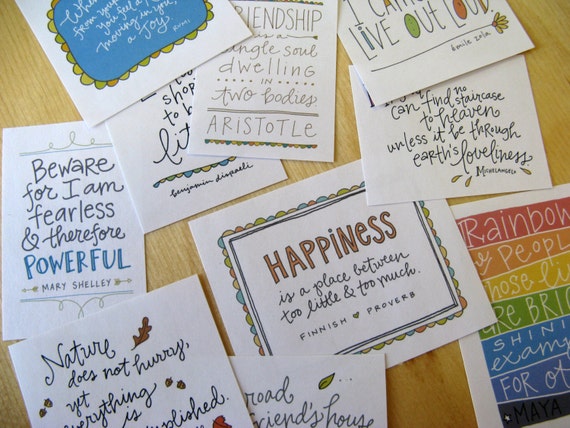 from your
you feel a
moving in you,
a Joy.
RUMI
FRIENDSHIP
is a
single soul
dwelling
in
two bodies
ARISTOTLE
LIVE OUT LOUD.
émile zola
shop
to b
lit
benjamin disraeli
can find no
staircase
to heaven
unless it be through
earth's loveliness.
MICHELANGELO
Beware
for I am
fearless
& therefore
POWERFUL
MARY SHELLEY
HAPPINESS
is a place between
too little & too much.
FINNISH PROVERB
RAINBOW
PEOPLE
HOSE LI
ARE BRI
SHINI
exam
FOR OT
MAYA
Nature
does not hurry,
yet
everything
is
road
friend's house